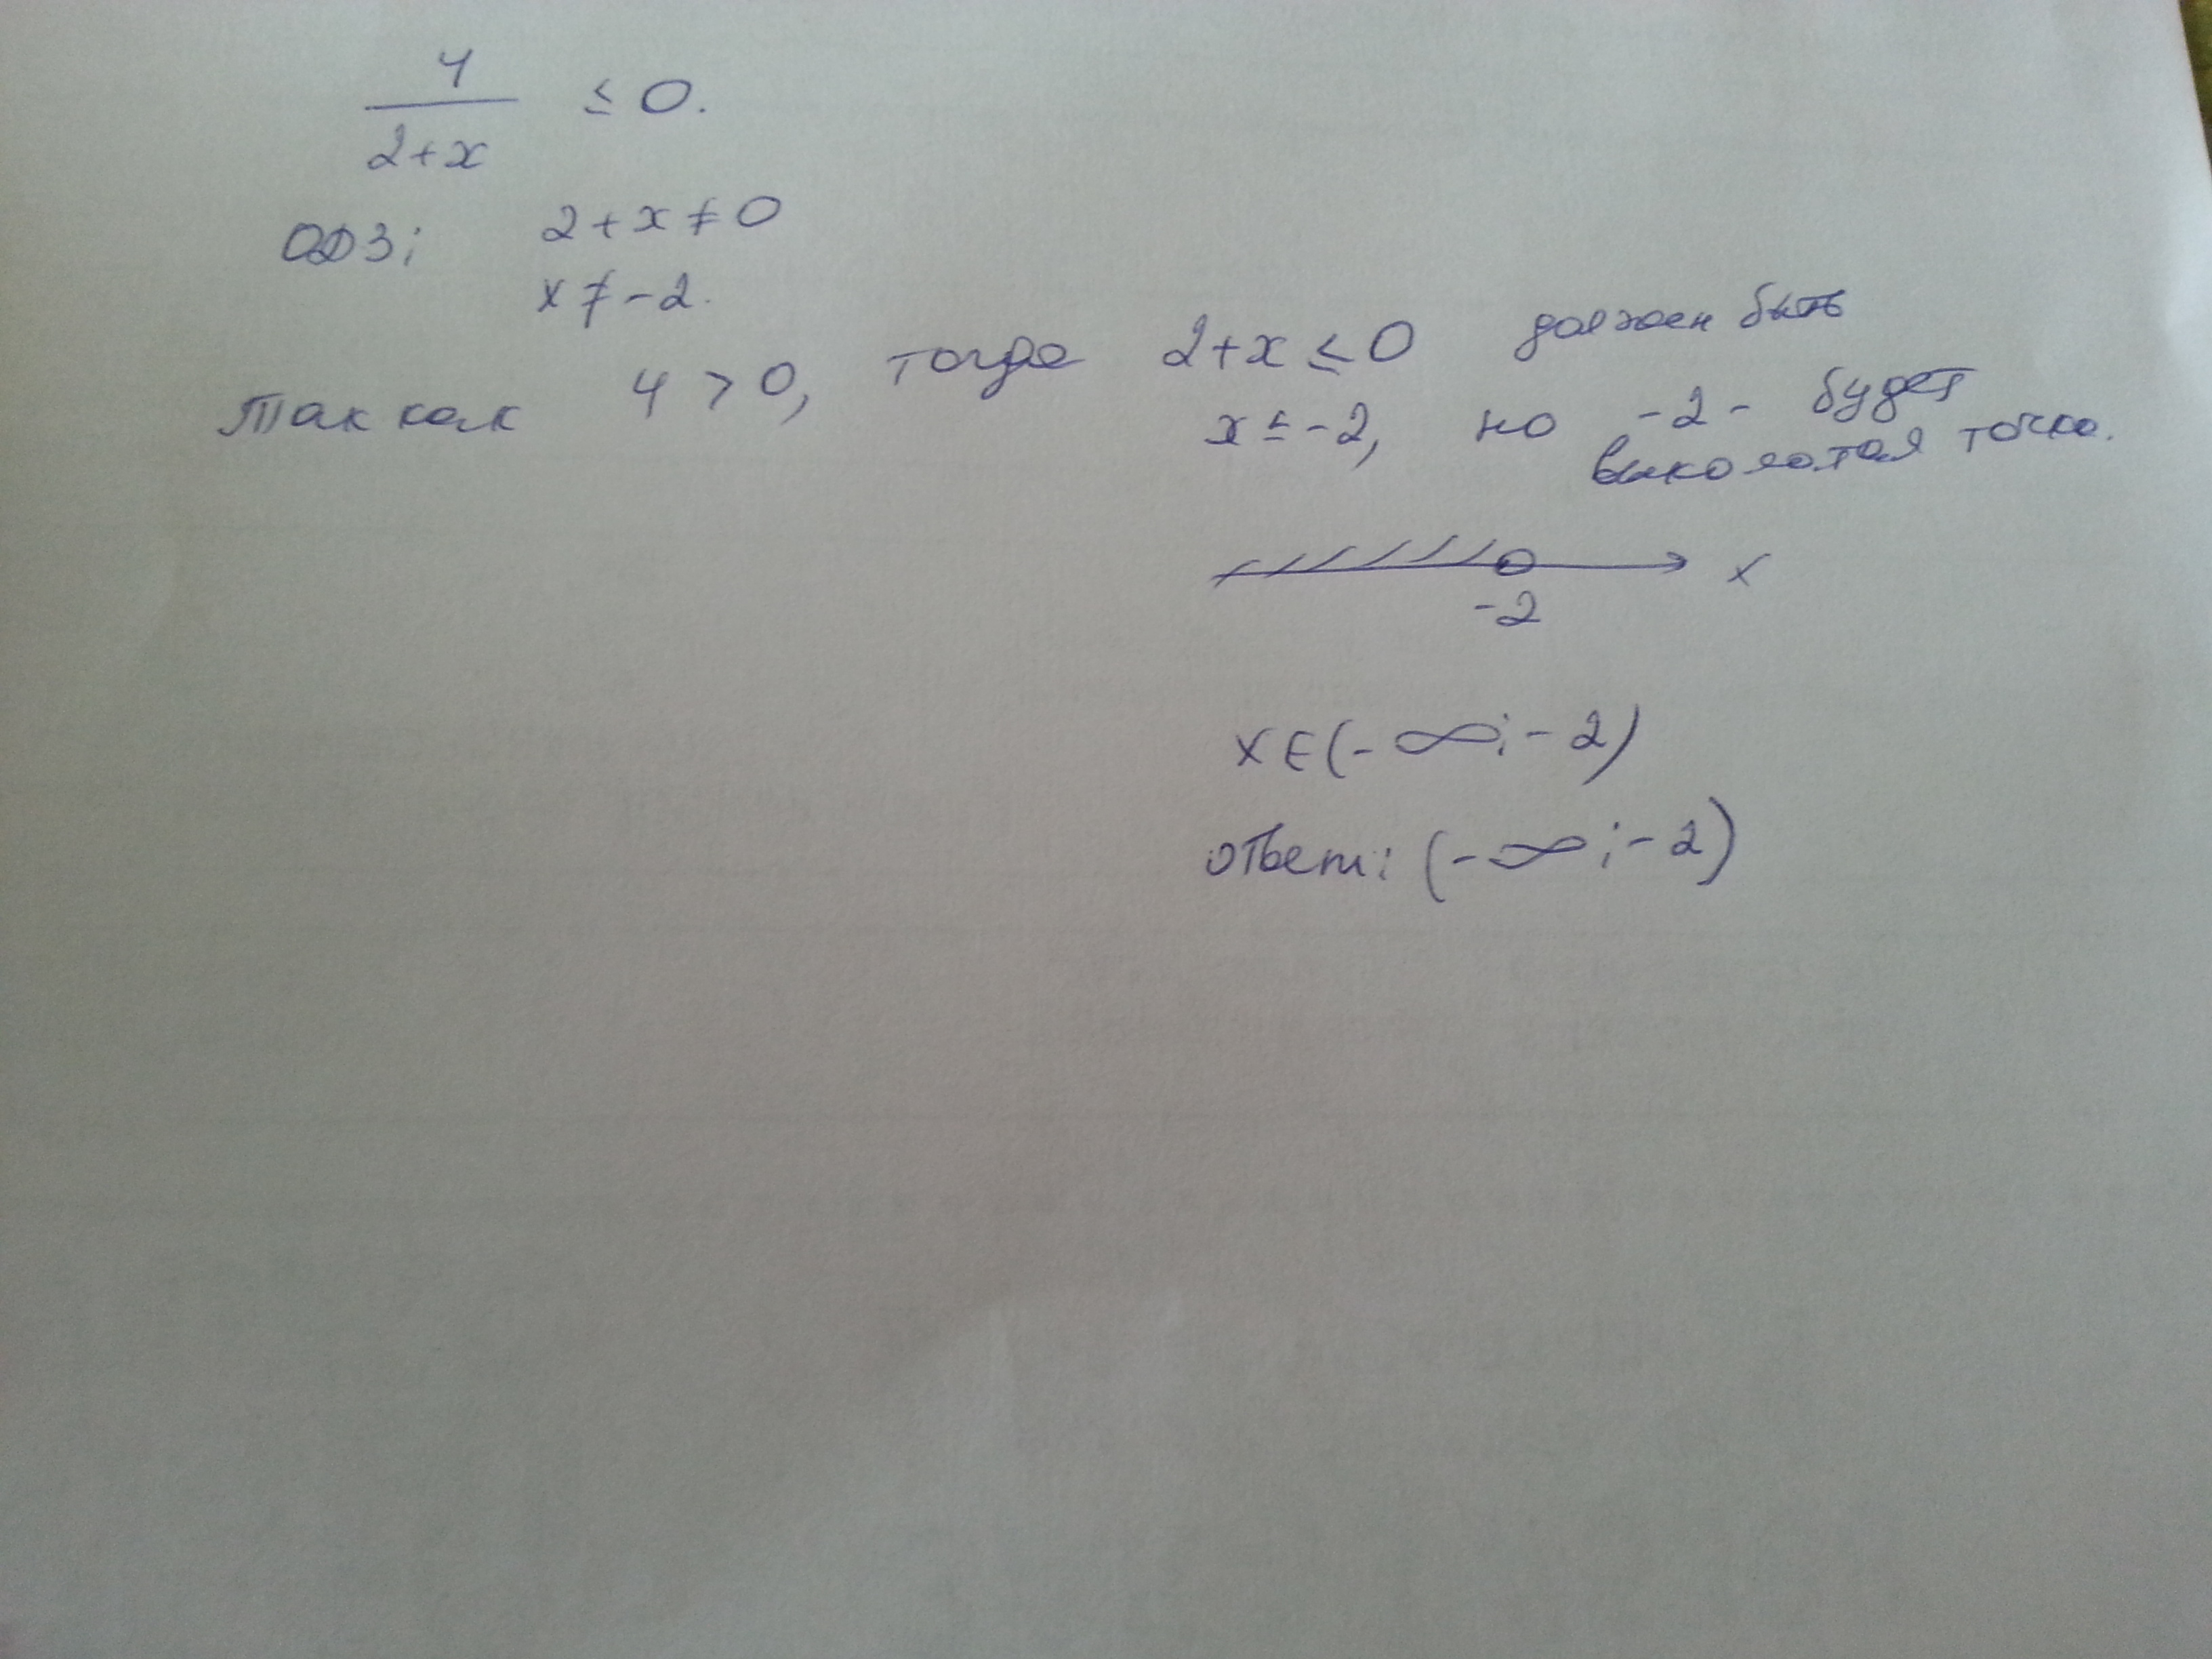 4
2+x ≤ 0.
ОДЗ; 2+x≠0
x≠-2.
Так как 4>0, тогда 2+x≤0 должен быть
x≤-2, но -2- будет
выколотая точка.
-2 x
x∈(-∞;-2)
ответ: (-∞;-2)